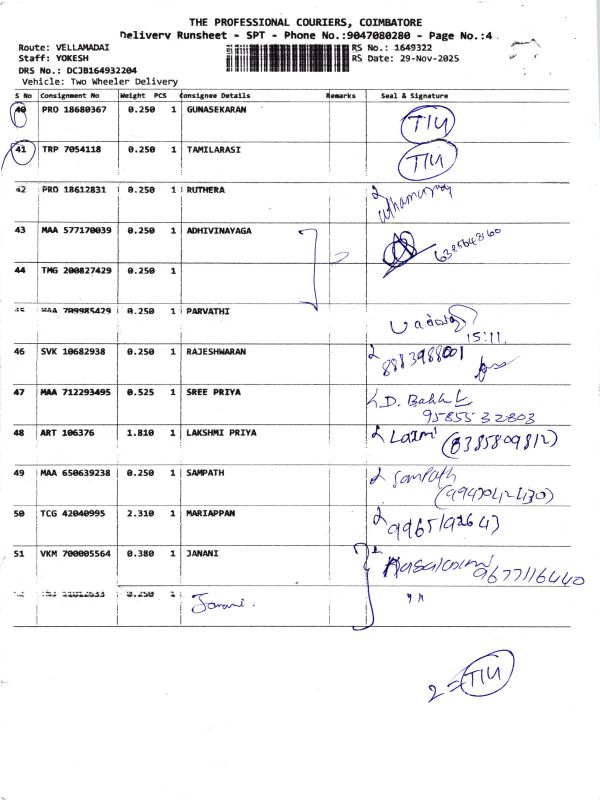 THE PROFESSIONAL COURIERS, COIMBATORE
Delivery Runsheet - SPT - Phone No.:9047080280 - Page No.:4
Route: VELLAMADAI RS No.: 1649322
Staff: YOKESH RS Date: 29-Nov-2025
DRS No.: DCJB164932204
Vehicle: Two Wheeler Delivery
S No Consignment No Weight PCS Consignee Details Remarks Seal & Signature
40 PRO 18680367 0.250 1 GUNASEKARAN T/U
41 TRP 7054118 0.250 1 TAMILARASI T/U
42 PRO 18612831 0.250 1 RUTHERA
43 MAA 577170039 0.250 1 ADHIVINAYAGA
44 TMG 200827429 0.250 1
45 MAA 709985429 0.250 1 PARVATHI
15:11
46 SVK 10682938 0.250 1 RAJESHWARAN 8883988001
47 MAA 712293495 0.525 1 SREE PRIYA D. 9585532803
48 ART 106376 1.810 1 LAKSHMI PRIYA Laxmi (8385809812)
49 MAA 650639238 0.250 1 SAMPATH Sampath
50 TCG 42040995 2.310 1 MARIAPPAN 9965192643
51 VKM 700005564 0.380 1 JANANI 9677116440
0.250 1 Janani. " "
2 = T/U